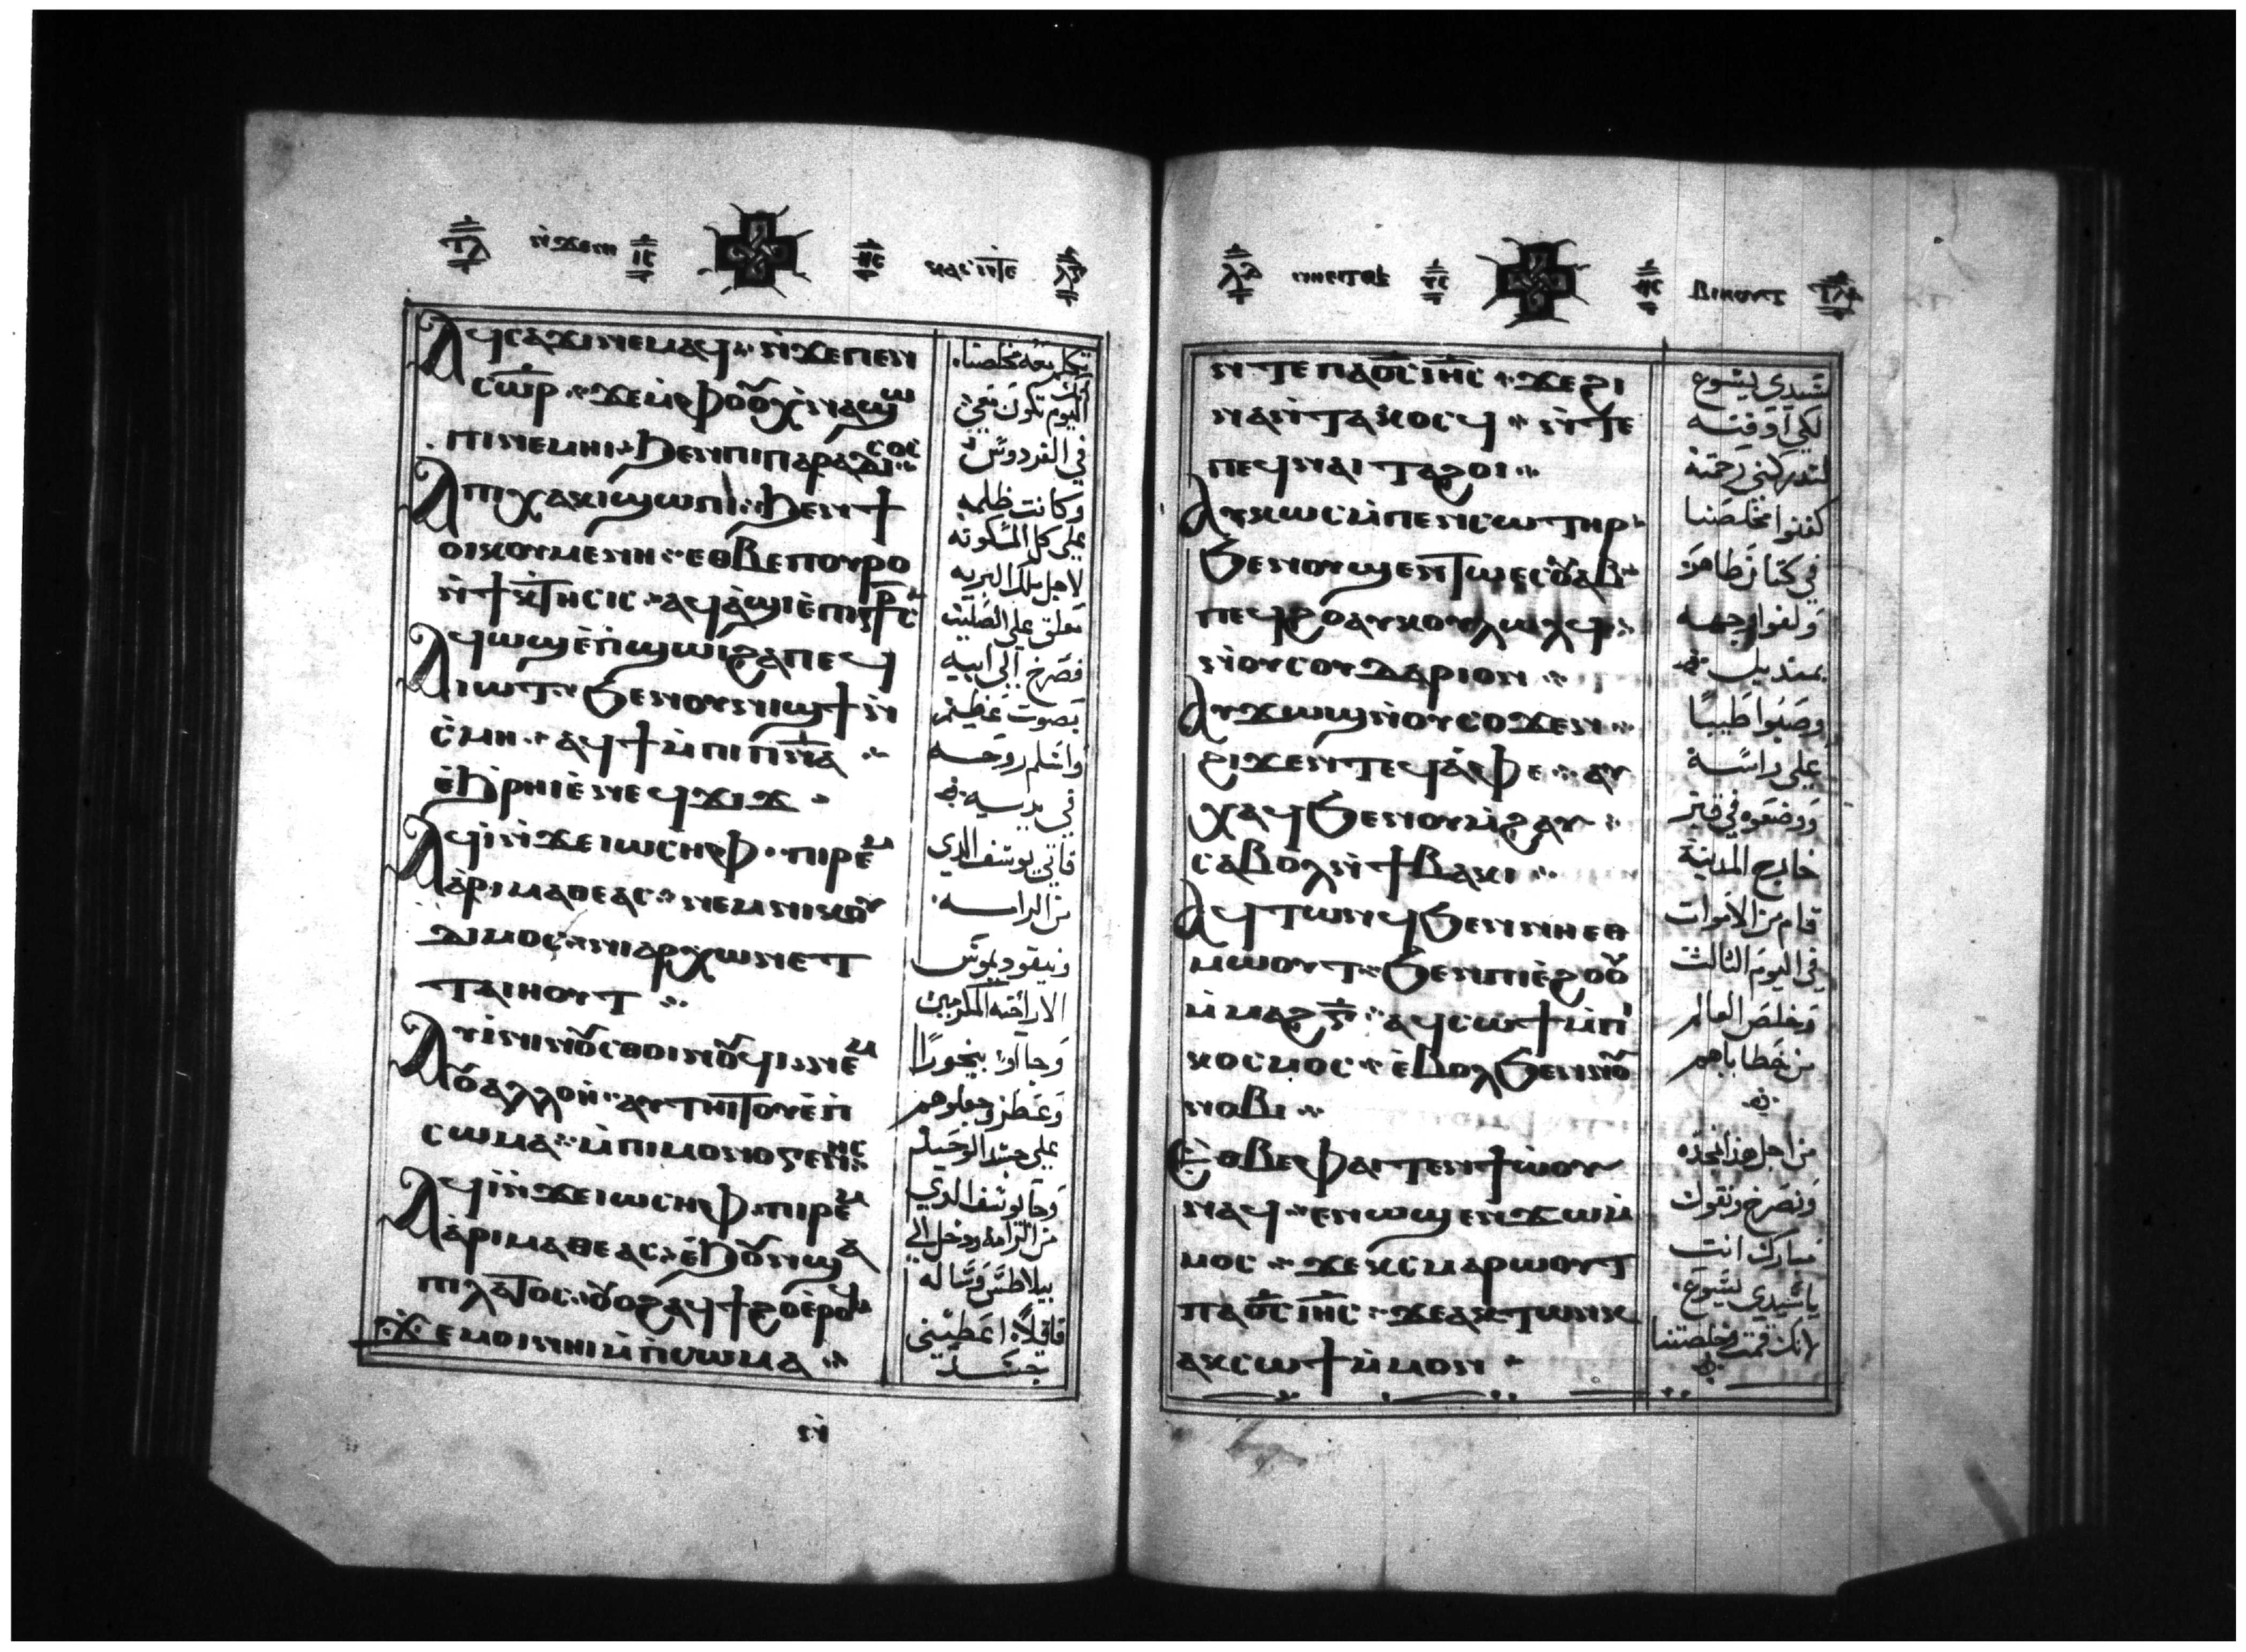 ⲁϥⲥⲁϫⲓⲛⲉⲙⲁϥ ⲛ̇ϫⲉⲡⲉⲛ
ⲥⲱ̅ⲣ ϫⲉⲙ̇ⲫⲟⲟⲩ ⲭ̇ⲛⲁϣⲱ
ⲡⲓⲛⲉⲙⲏⲓ ϧⲉⲛⲡⲓⲡⲁⲣⲁⲇⲓⲥⲟⲥ
ⲁⲡⲭⲁⲕⲓϣⲱⲡⲓ ϧⲉⲛϯ
ⲟⲓⲕⲟⲩⲙⲉⲛⲏ ⲉⲑⲃⲉⲡⲟⲩⲣⲟ
ⲛ̇ϯⲕ̇ⲧⲏⲥⲓⲥ ⲁϥⲁ̇ϣⲓⲉ̇ⲡⲓ
ⲁϥⲱϣⲉ̇ⲡ̇ϣⲱⲓϩⲁⲡⲉϥ
ⲓⲱⲧ ϧⲉⲛⲟⲩⲛⲓϣϯⲛ̇
ⲥ̇ⲙⲏ ⲁϥϯⲙ̇ⲡⲓⲡ̅ⲛ̅ⲁ
ⲉ̇ϧ̇ⲣⲏⲓⲉ̇ⲛⲉϥϫⲓϫ
ⲁϥⲓ̇ⲛ̇ϫⲉⲓⲱⲥⲏⲫ ⲡⲓⲣⲉⲙ
ⲁ̇ⲣⲓⲙⲁⲑⲉⲁⲥ ⲛⲉⲙⲛⲓⲕⲟ
ⲇⲓⲙⲟⲥ ⲛⲓⲁⲣⲭⲱⲛⲉⲧ
ⲧⲁⲓⲏⲟⲩⲧ
ⲁⲩⲓ̇ⲛⲓⲛⲟⲩⲥⲑⲟⲓⲛⲟⲩϥⲓ ⲛⲉⲙ
ⲟⲩⲁⲗⲗⲟⲏ ⲁⲩⲧⲏⲓⲧⲟⲩⲉ̇ⲡ̇
ⲥⲱⲙⲁ ⲙ̇ⲡⲓⲙⲟⲛⲟⲅⲉⲛⲏⲥ
ⲁϥⲓ̇ⲛ̇ϫⲉⲓⲱⲥⲏⲫ ⲡⲓⲣⲉⲙ
ⲁ̇ⲣⲓⲙⲁⲑⲉⲁⲥ ⲉ̇ϧⲟⲩⲛϣⲁ
ⲡⲓⲗⲁⲧⲟⲥ ⲟⲩⲟϩⲁϥϯϩⲟⲉ̇ⲣⲟϥ
ϫⲉⲙⲟⲓⲛⲏⲓⲙ̇ⲡ̇ⲥⲱⲙⲁ
ⲛ̇
مخلصنا
اليوم تكون معي
في الفردوس
وكانت ظلمه
علي كل المسكونه
لاجل ملك البريه
تعلق علي الصليب
فصرخ الي ابيه
بصوت عظيم
واسلم روحه
في يديه
فاتي يوسف الدي
من الرامه
ونيقوديموس
الاراخنه المكرمين
وجعلوهم
علي جسد الوحيد
وجا يوسف الدي
من الرامه ودخل الي
بيلاطس وساله
قايلاً اعطيني
جسد
ⲛ̇ⲧⲉⲡⲁⲟ̅ⲥ̅ⲓ̅ⲏ̅ⲥ̅ ϫⲉϩⲓ
ⲛⲁⲛ̇ⲧⲁⲕⲟⲥϥ ⲛ̇ⲧⲉ
ⲡⲉϥⲛⲁⲓⲧⲁϩⲟⲓ
ⲁⲩⲕⲱⲥⲙ̇ⲡⲉⲛⲥⲱⲧⲏⲣ
ϧⲉⲛⲟⲩϣⲉⲛⲧⲱⲉⲥⲟⲩⲁⲃ
ⲡⲉϥϩⲟⲁⲩⲕⲟⲩⲗⲱⲗϥ
ⲛ̇ⲟⲩⲥⲟⲩⲇⲁⲣⲓⲟⲛ
ⲁⲩϫⲱϣⲛ̇ⲟⲩⲥⲟϫⲉⲛ
ϩⲓϫⲉⲛⲧⲉϥⲁ̇ⲫⲉ ⲁⲩ
ⲭⲁϥϧⲉⲛⲟⲩⲙ̇ϩⲁⲩ
ⲥⲁⲃⲟⲗⲛ̇ϯⲃⲁⲕⲓ
ⲁϥⲧⲱⲛϥϧⲉⲛⲛⲏⲉⲑ
ⲙⲱⲟⲩⲧ ϧⲉⲛⲡⲓⲉ̇ϩⲟⲟⲩ
ⲙ̇ⲙⲁϩ ⲅ̅ ⲁϥⲥⲱϯⲙ̇ⲡⲓ
ⲕⲟⲥⲙⲟⲥ ⲉ̇ⲃⲟⲗϧⲉⲛⲛⲟⲩ
ⲛⲟⲃⲓ
ⲉⲑⲃⲉⲫⲁⲓⲧⲉⲛϯⲱ̇ⲟⲩ
ⲛⲁϥ ⲉⲛⲱϣⲉⲛϫⲱⲙ̇
ⲙⲟⲥ ϫⲉⲕⲥⲙⲁⲣⲱⲟⲩⲧ
ⲡⲁⲟ̅ⲥ̅ⲓ̅ⲏ̅ⲥ̅ ϫⲉⲁⲕⲧⲱⲛⲕ
ⲁⲕⲥⲱϯⲙ̇ⲙⲟⲛ
سيدي يسوع
كفنوا مخلصنا
في كتان طاهر
ولفوا وجهه
بمنديل
وصبوا طيبًا
علي راسه
ووضعوه في قبر
خارج المدينة
قام من الاموات
في اليوم الثالث
وخلص العالم
من خطاياهم
من اجل هذا نمجده
ونصرخ ونقول
مبارك انت
ياسيدي يسوع
لانك قمت وخلصتنا